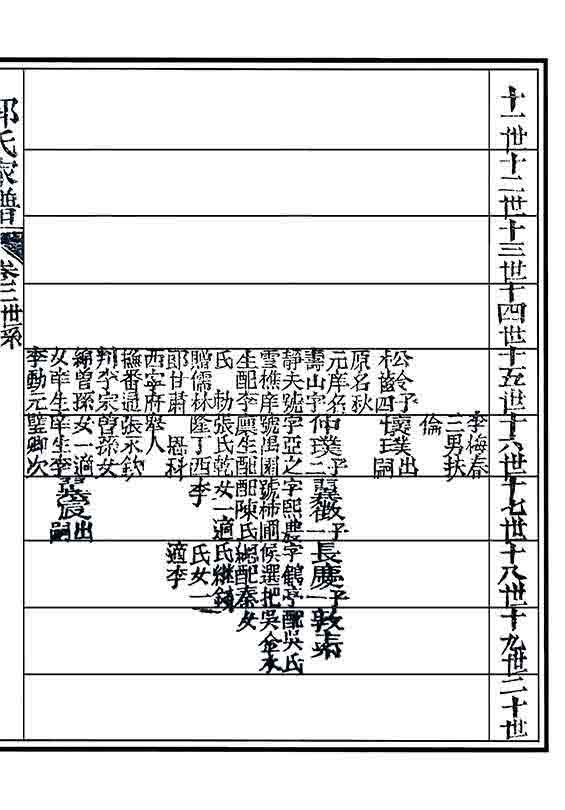 十一世
十二世
十三世
十四世
十五世
十六世
十七世
十八世
十九世
二十世
李梅春
三男扶
倫
松齡子
出
嗣
原名秋
元庠名
壽山字
靜夫號
雲樵庠
生配李
氏 勅
贈儒林
郎甘肅
西寧府
撫番通
判李宗
錦曾孫
女庠生
李勳元
仲璞子
仲璞二
字亞之
號萬圃
廩生配
張氏乾
隆丁酉
恩科
舉人
張永欽
曾孫女
女一適
庠生李
璧卿次
徵子
字熙農
配陳氏
女一適
李
震出
嗣
長慶子
一
字鶴亭
候選把
繼配秦
氏女一
適李
敦素
配吳氏
吳金水
女
郭氏家譜
卷三世系